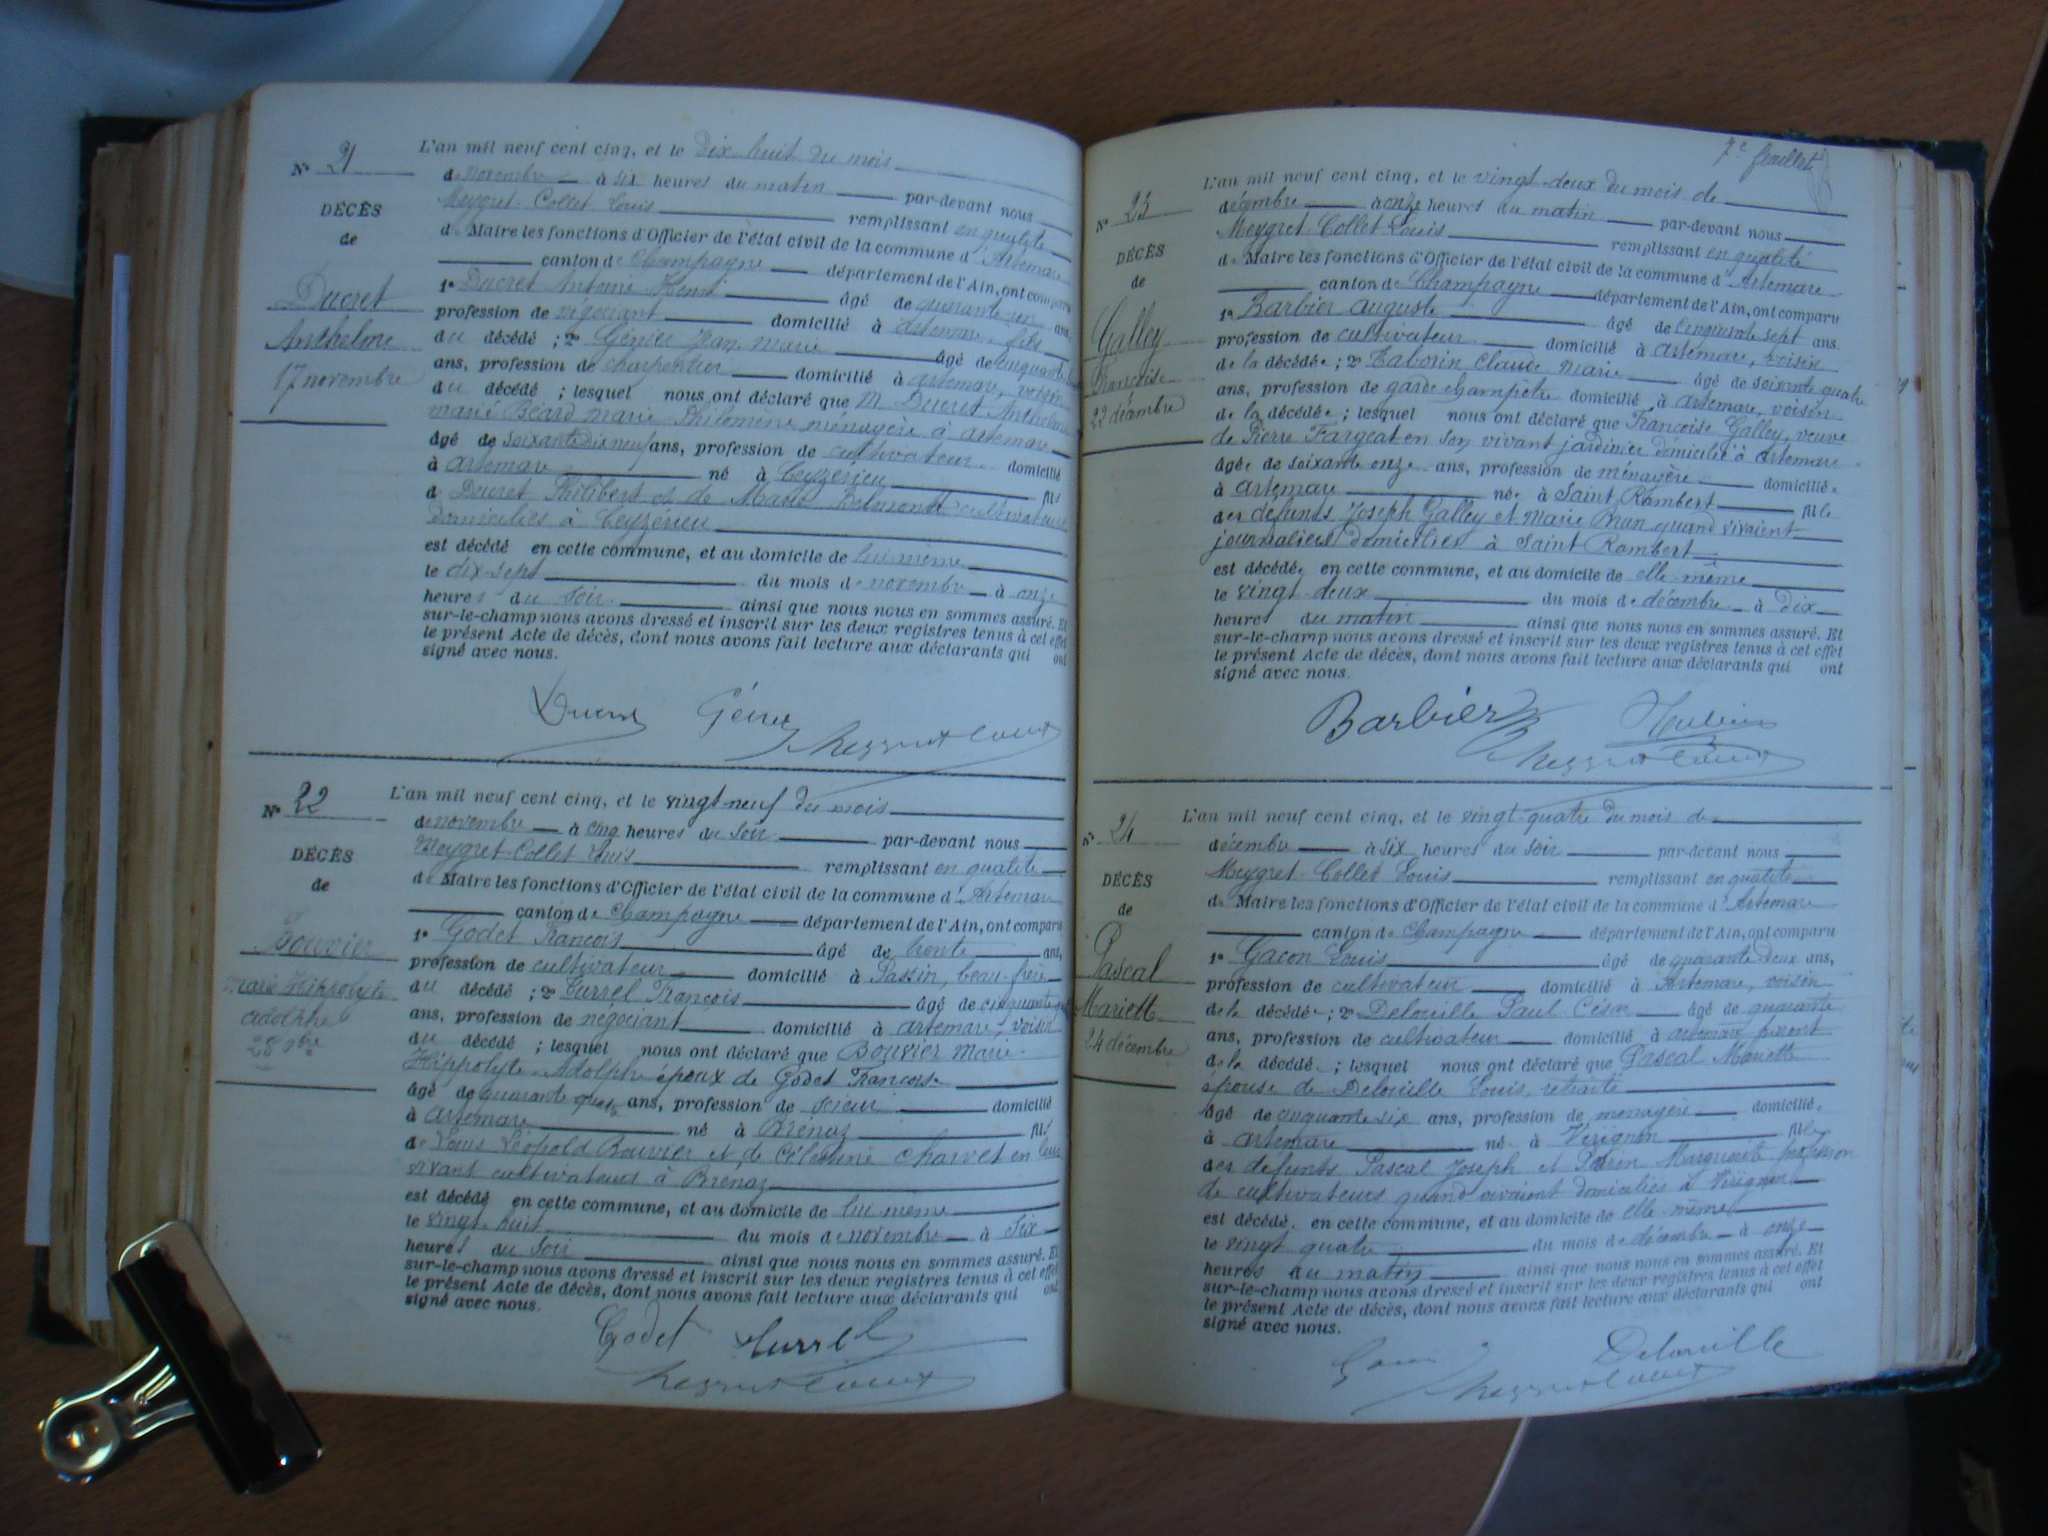 N° 21
DÉCÈS
de
Ducret
Anthelme
17 novembre
L'an mil neuf cent cinq, et le Dix huit du mois
de novembre à six heures du matin par-devant nous
Meygret-Collet Louis remplissant en qualité
de Maire les fonctions d'Officier de l'état civil de la commune d'Artemare
canton de Champagne département de l'Ain, ont comparu
1° Ducret Antoine Henri âgé de quarante un ans
profession de négociant domicilié à Artemare, fils
du décédé ; 2° Génier Jean Marie âgé de cinquante
ans, profession de charpentier domicilié à Artemare, voisin
du décédé ; lesquel nous ont déclaré que M Ducret Anthelme
marié Béard Marie Philomène ménagère à Artemare
âgé de soixante dix neuf ans, profession de cultivateur domicilié
à Artemare né à Ceyzérieu fils
de Ducret Philibert et de Marie cultivateurs
domiciliés à Ceyzérieu
est décédé en cette commune, et au domicile de lui même
le dix-sept du mois de novembre à onze
heures du soir ainsi que nous nous en sommes assuré. Et
sur-le-champ nous avons dressé et inscrit sur les deux registres tenus à cet effet
le présent Acte de décès, dont nous avons fait lecture aux déclarants qui ont
signé avec nous.
N° 22
DÉCÈS
de
Bouvier
Marie Hippolyte
Adolphe
28 9bre
L'an mil neuf cent cinq, et le vingt-neuf du mois
de novembre à cinq heures du soir par-devant nous
Meygret-Collet Louis remplissant en qualité
de Maire les fonctions d'Officier de l'état civil de la commune d'Artemare
canton de Champagne département de l'Ain, ont comparu
1° Godet François âgé de trente ans,
profession de cultivateur domicilié à Passin, beau-frère
du décédé ; 2° Turrel François âgé de cinquante
ans, profession de négociant domicilié à Artemare, voisin
du décédé ; lesquel nous ont déclaré que Bouvier Marie
Hippolyte Adolphe époux de Godet Françoise
âgé de quarante ans, profession de scieur domicilié
à Artemare né à Brénaz fils
de Louis Léopold Bouvier et de Célestine Charvet en leur
vivant cultivateurs à Brénaz
est décédé en cette commune, et au domicile de lui même
le vingt huit du mois de novembre à six
heures du soir ainsi que nous nous en sommes assuré. Et
sur-le-champ nous avons dressé et inscrit sur les deux registres tenus à cet effet
le présent Acte de décès, dont nous avons fait lecture aux déclarants qui ont
signé avec nous.
Godet Turrel
7e feuillet
N° 23
DÉCÈS
de
Galley
Françoise
22 décembre
L'an mil neuf cent cinq, et le vingt-deux du mois de
décembre à onze heures du matin par-devant nous
Meygret-Collet Louis remplissant en qualité
de Maire les fonctions d'Officier de l'état civil de la commune d'Artemare
canton de Champagne département de l'Ain, ont comparu
1° Barbier Auguste âgé de cinquante sept ans.
profession de cultivateur domicilié à Artemare, voisin
de la décédée ; 2° Claude Marie âgé de soixante quatre
ans, profession de garde champêtre domicilié à Artemare, voisin
de la décédée ; lesquel nous ont déclaré que Françoise Galley, veuve
de Pierre Fargeat en son vivant jardinier domicilié à Artemare
âgée de soixante onze ans, profession de ménagère domiciliée
à Artemare née à Saint Rambert fille
des défunts Joseph Galley et Marie quand vivaient
journaliers domiciliés à Saint Rambert
est décédée en cette commune, et au domicile de elle-même
le vingt-deux du mois de décembre à dix
heures du matin ainsi que nous nous en sommes assuré. Et
sur-le-champ nous avons dressé et inscrit sur les deux registres tenus à cet effet
le présent Acte de décès, dont nous avons fait lecture aux déclarants qui ont
signé avec nous.
Barbier
N° 24
DÉCÈS
de
Pascal
Mariette
24 décembre
L'an mil neuf cent cinq, et le vingt-quatre du mois de
décembre à six heures du soir par-devant nous
Meygret-Collet Louis remplissant en qualité
de Maire les fonctions d'Officier de l'état civil de la commune d'Artemare
canton de Champagne département de l'Ain, ont comparu
1° Gacon Louis âgé de quarante deux ans,
profession de cultivateur domicilié à Artemare, voisin
de la décédée ; 2° Delouille Paul César âgé de quarante
ans, profession de cultivateur domicilié à Artemare parent
de la décédée ; lesquel nous ont déclaré que Pascal Mariette
épouse de Delouille Louis, retraité
âgé de cinquante six ans, profession de ménagère domiciliée
à Artemare née à Virignin fille
des défunts Pascal Joseph et Marguerite profession
de cultivateurs quand vivaient domiciliés à Virignin
est décédée en cette commune, et au domicile de elle-même
le vingt quatre du mois de décembre à onze
heures du matin ainsi que nous nous en sommes assuré. Et
sur-le-champ nous avons dressé et inscrit sur les deux registres tenus à cet effet
le présent Acte de décès, dont nous avons fait lecture aux déclarants qui ont
signé avec nous.
Delouille